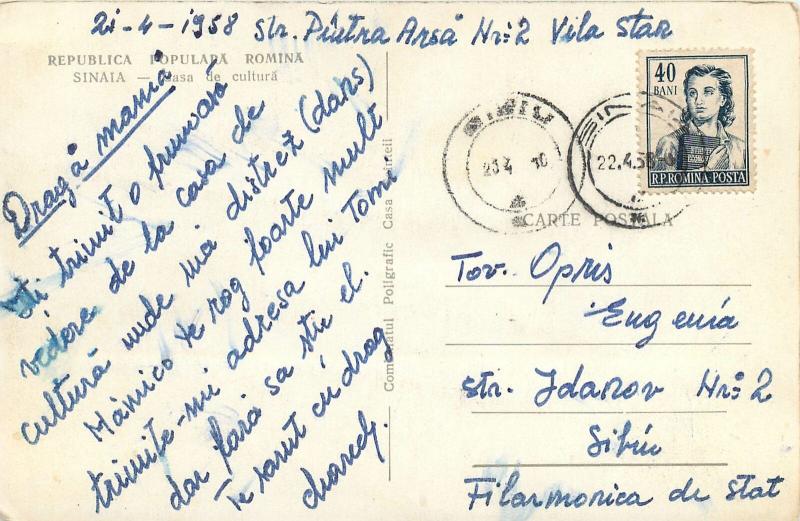 21-4-1958 Str. Piatra Arsă Nr: 2 Vila Star
REPUBLICA POPULARĂ ROMINĂ
SINAIA — Casa de cultură
Dragă mamă
Îti trimit o frumoasă
vedere de la casa de
cultură unde mă distrez (dans)
Mămico te rog foarte mult
trimite-mi adresa lui Tomi
dar fără sa stie el.
Te sarut cu drag
Combinatul Poligrafic Casa Scînteii
SIBIU
23 4 10
SINAIA
22.4.58
40
BANI
R.P. ROMINA POSTA
CARTE POSTALA
Tov. Opris
Eugenia
str. Jdanov Nr: 2
Sibiu
Filarmonica de stat